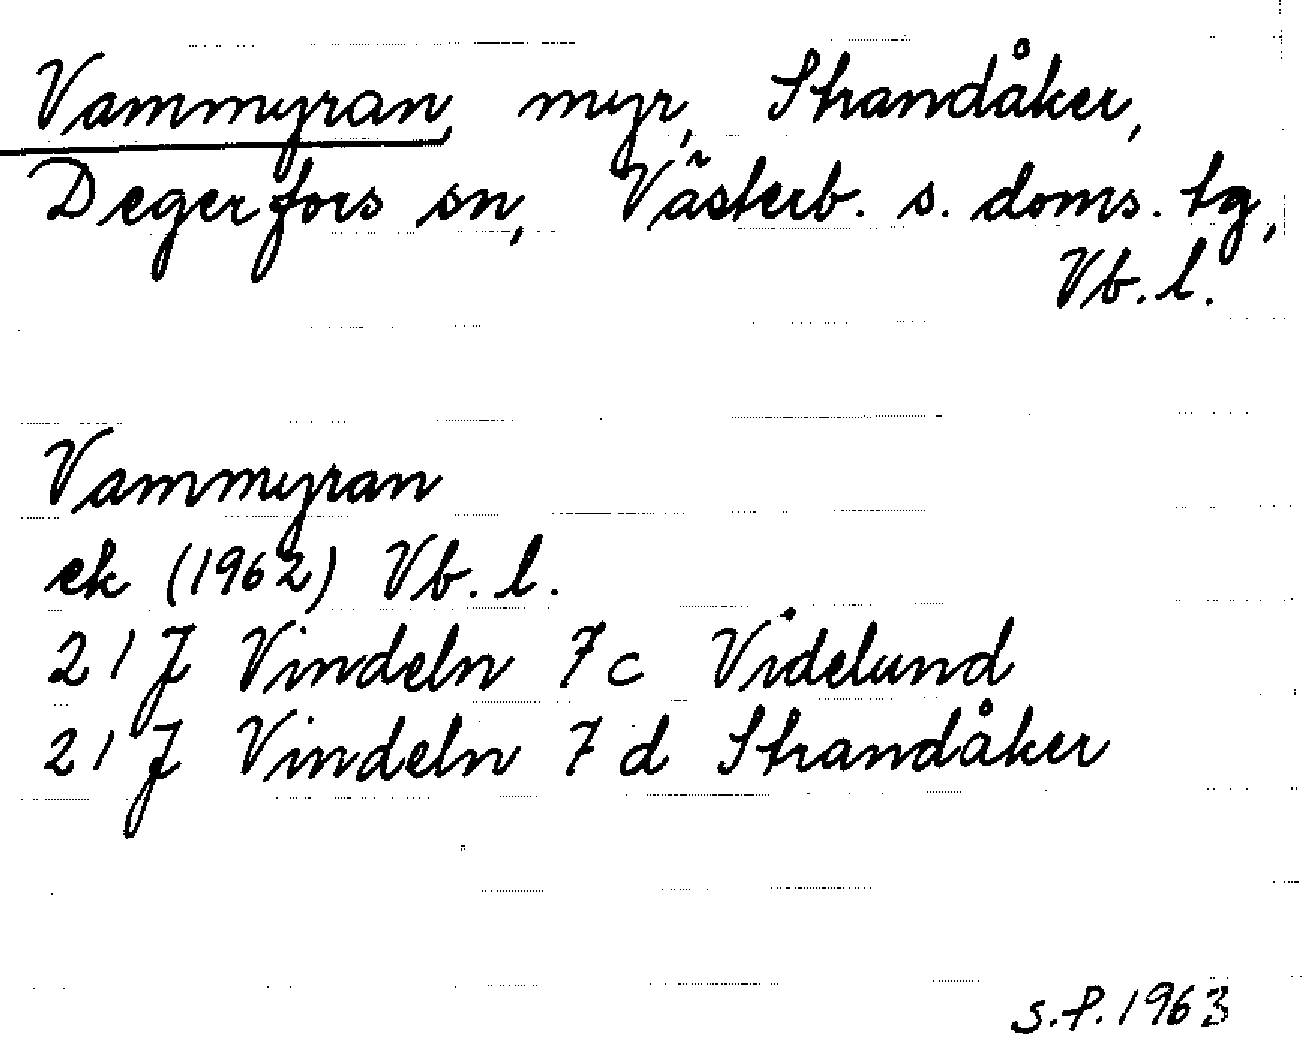 Vammyran, myr, Strandåker,
Degerfors sn, Västerb. s. doms. tg,
Vb. l.
Vammyran
ek (1962) Vb. l.
21 J Vindeln 7 c Videlund
21 J Vindeln 7 d Strandåker
s.f. 1963